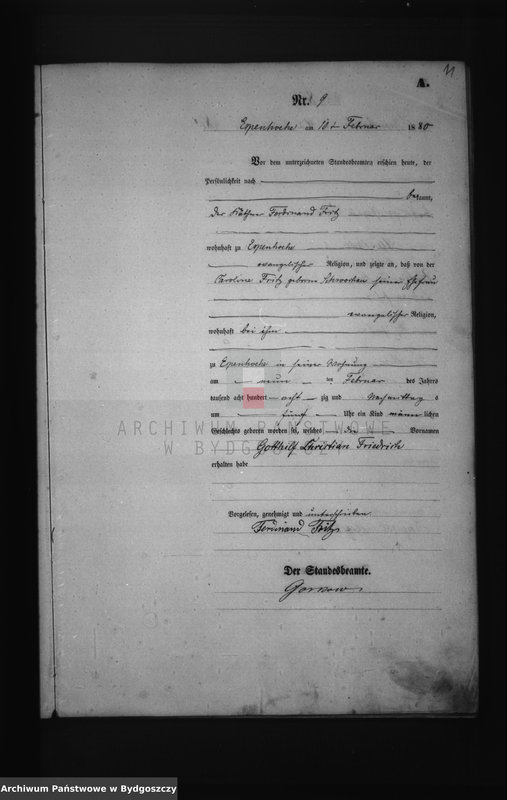 11
A.
Nr. 9
am 10t Februar 1880
Vor dem unterzeichneten Standesbeamten erschien heute, der
Persönlichkeit nach
bekannt,
der Käthner Ferdinand Fritz
wohnhaft zu
evangelischer Religion, und zeigte an, daß von der
Caroline Fritz geborene seiner Ehefrau
evangelischer Religion,
wohnhaft bei ihm
zu in seiner Wohnung
am neun ten Februar des Jahres
tausend acht hundert acht zig und Nachmittag s
um fünf Uhr ein Kind männ lichen
Geschlechts geboren worden sei, welches die Vornamen
Gotthilf Christian Friedrich
erhalten habe
Vorgelesen, genehmigt und unterschrieben.
Ferdinand Fritz
Der Standesbeamte.
ARCHIWUM PAŃSTWOWE
W BYDGOSZCZY
Archiwum Państwowe w Bydgoszczy